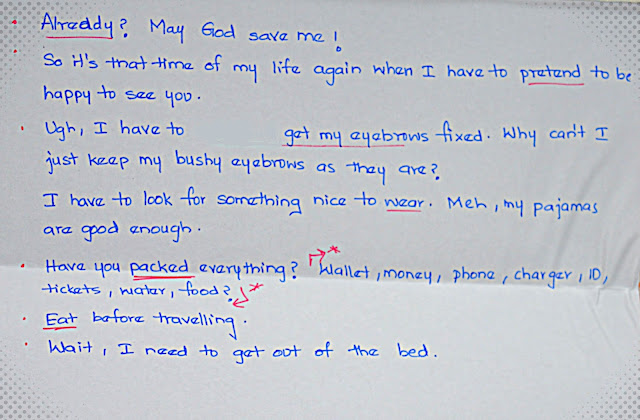 • Alreddy? May God save me!
• So it's that time of my life again when I have to pretend to be
happy to see you.
• Ugh, I have to get my eyebrows fixed. Why can't I
just keep my bushy eyebrows as they are?
I have to look for something nice to wear. Meh, my pajamas
are good enough.
• Have you packed everything? * Wallet, money, phone, charger, ID,
tickets, water, food? *
• Eat before travelling.
• Wait, I need to get out of the bed.